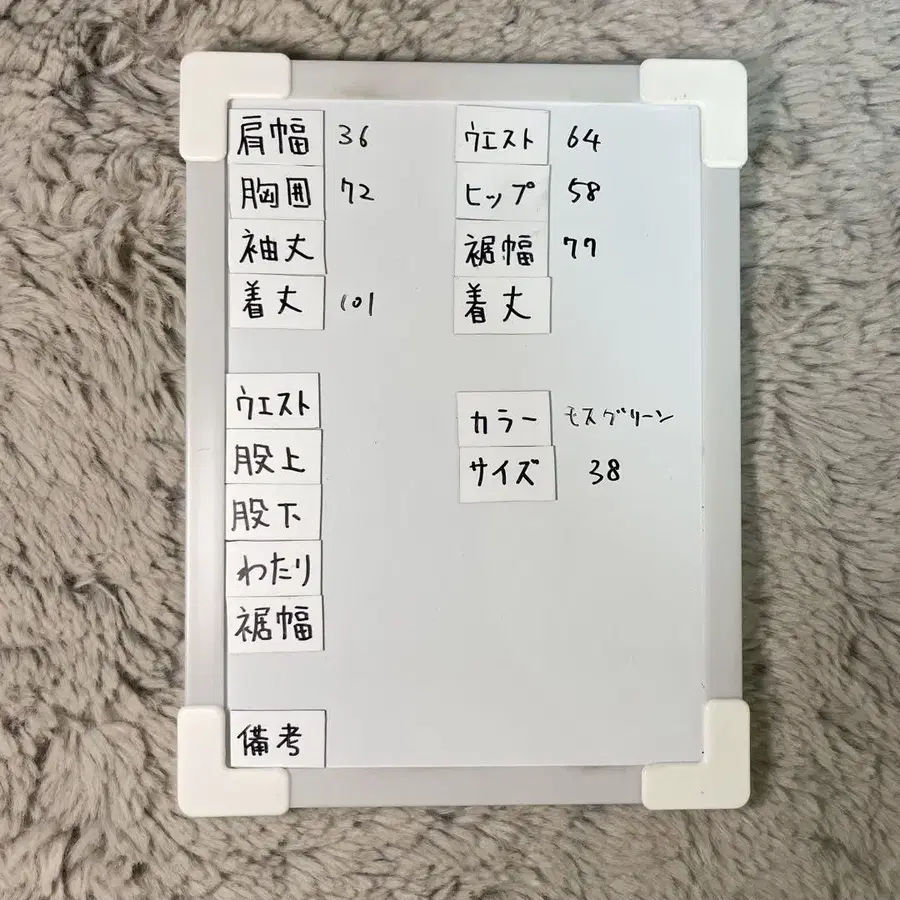 肩幅 36
胸囲 72
袖丈
着丈 101
ウエスト 64
ヒップ 58
裾幅 77
着丈
ウエスト
股上
股下
わたり
裾幅
カラー モスグリーン
サイズ 38
備考